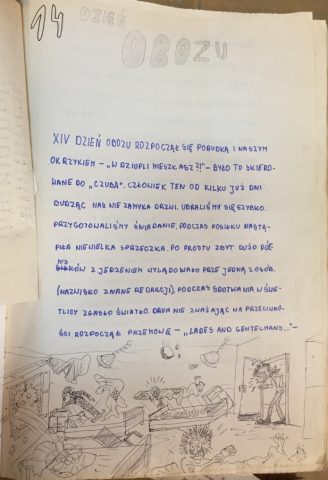 14 DZIEŃ
OBOZU
XIV DZIEŃ OBOZU ROZPOCZĄŁ SIĘ POBUDKĄ I NASZYM
OKRZYKIEM – „W DZIUPLI MIESZKASZ?!” – BYŁO TO SKIERO-
WANE DO „CZUBA”. CZŁOWIEK TEN OD KILKU JUŻ DNI
BUDZĄC NAS NIE ZAMYKA DRZWI. UBRALIŚMY SIĘ SZYBKO.
PRZYGOTOWALIŚMY ŚNIADANIE. PODCZAS POSIŁKU NASTĄ-
PIŁA NIEWIELKA SPRZECZKA. PO PROSTU ZBYT DUŻO PÓŁ-
MISKÓW Z JEDZENIEM WYLĄDOWAŁO PRZE JEDNĄ Z OSÓB.
(NAZWISKO ZNANE REDAKCJI). PODCZAS SPOTKANIA W ŚWIE-
TLICY ZGASŁO ŚWIATŁO. DRUH NIE ZWAŻAJĄC NA PRZECIWNO-
ŚCI ROZPOCZĄŁ PRZEMOWĘ – „LADES AND GENTELMANS...” –